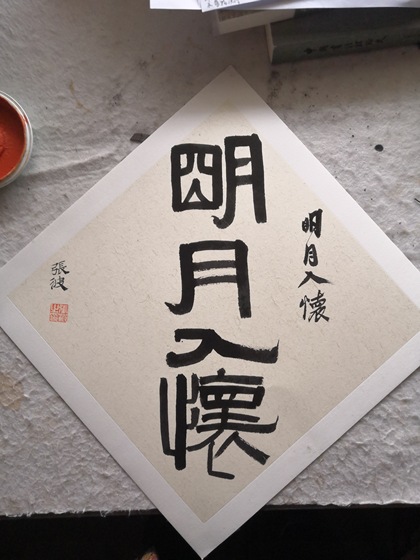 明月入懷
明月入懷
張波